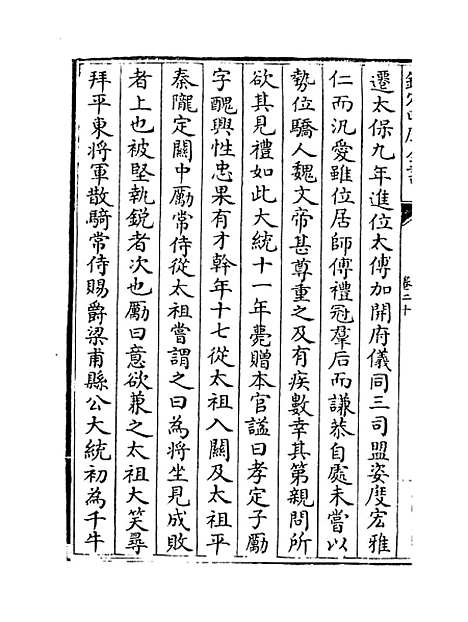 卷二十
遷太保九年進位太傅加開府儀同三司盟姿度宏雅
仁而汎愛雖位居師傅禮冠羣后而謙恭自處未嘗以
勢位驕人魏文帝甚尊重之及有疾數幸其第親問所
欲其見禮如此大統十一年薨贈本官諡曰孝定子勵
字醜興性忠果有才幹年十七從太祖入關及太祖平
秦隴定關中勵常侍從太祖嘗謂之曰為將坐見成敗
者上也被堅執鋭者次也勵曰意欲兼之太祖大笑尋
拜平東將軍散騎常侍賜爵梁甫縣公大統初為千牛